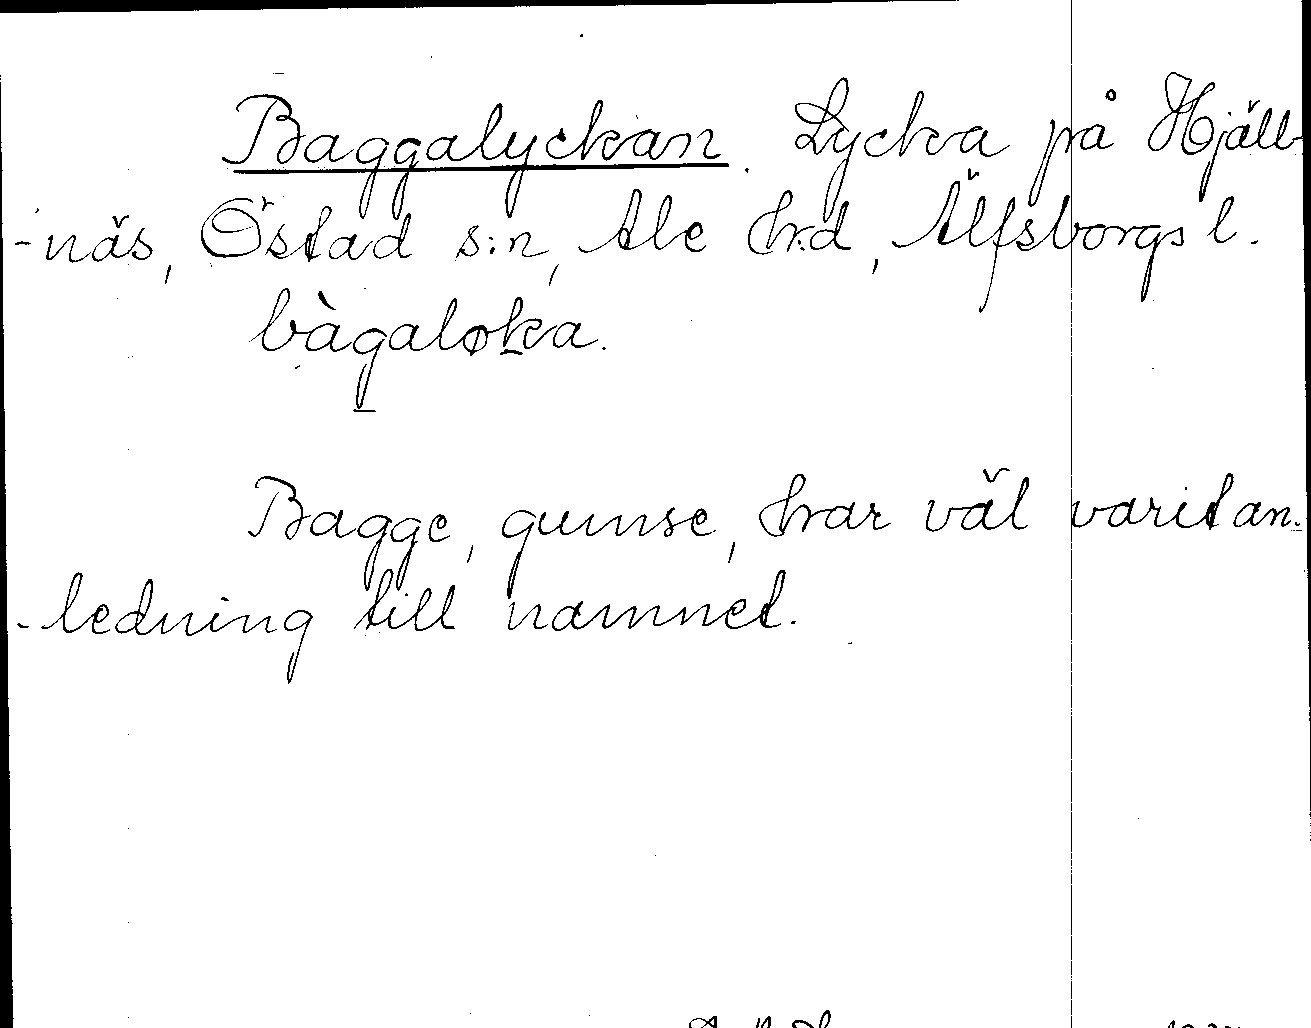 Baggalyckan. Lycka på Hjäll-
-näs, Östad s:n, Ale hrd, Älfsborgs l.
bàgaløka.
Bagge, gumse, har väl varit an-
-ledning till namnet.